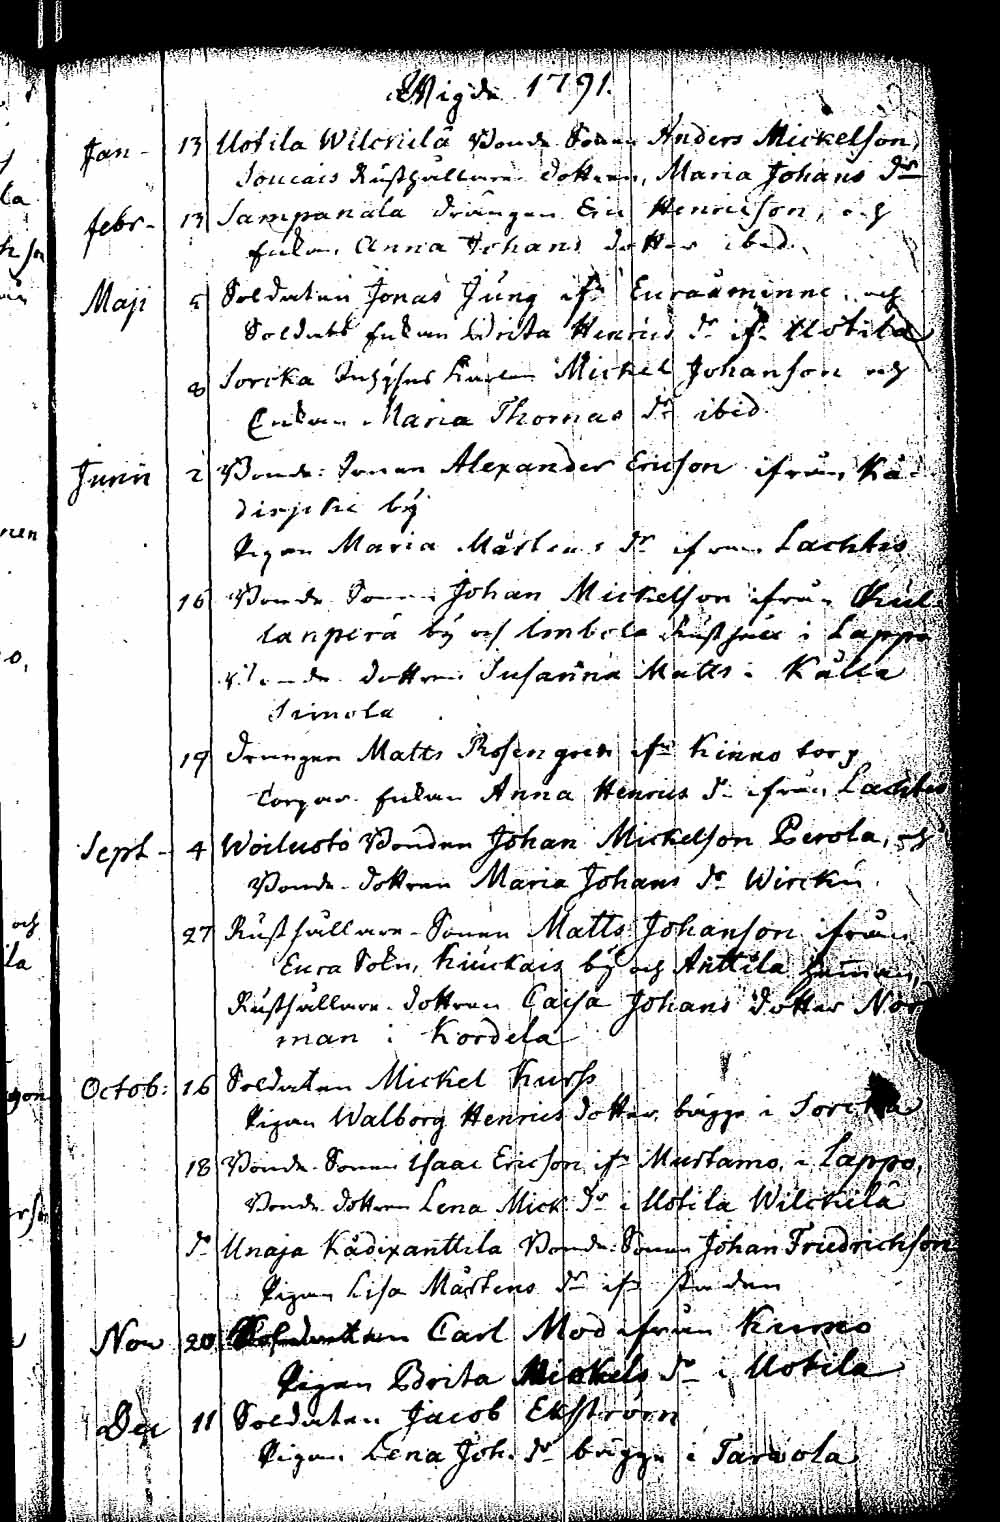 Wigde 1791.
Jan - 13 Uotila Wilckilä Bonde Sonen Anders Mickelson,
Soucais Rusthållare dottren, Maria Johans dr
febr - 13 Sampanala drängen Eric Henricson, och
Enkan Anna Johans dotter ibid.
Maji 5 Soldaten Jonas Jung ifr Euraåminne och
Soldats Enkan Brita Henrics dr ifr Uotila
8 Sorcka Inhyses Karlen Mickel Johanson och
Enkan Maria Thomas dr ibid
Junii 2 Bonde Sonen Alexander Ericson ifrån Kå-
by
Pigan Maria Mårtens dr ifrån Lachtis
16 Bonde Sonen Johan Mickelson ifrån Kul-
lanperä by och Imbola Rusthåll i Lappo
Bonde dottren Susanna Matts. Källa
Simola
19 Drängen Matts Rosengren ifr Kinno torp
Torpar Enkan Anna Henrics dr ifrån Lachtis
Sept - 4 Woiluoto Bonden Johan Mickelson Perola, och
Bonde dottren Maria Johans dr Wircku
27 Rusthållare-Sonen Matts Johanson ifrån
Eura Sokn, Kiuckais by och Anttila hemman,
Rusthållare dottren Caisa Johans dotter Nor
man i Kordela
Octob: 16 Soldaten Mickel Kurss
Pigan Walborg Henrics dotter, bägge i Sorcka
18 Bonde-Sonen Isaac Ericson ifr Murtamo, i Lappo,
Bonde dottren Lena Mick. dr i Uotila Wilckilä
dr Unaja Kådixanttila Bonde-Sonen Johan Friedrichson
Pigan Lisa Mårtens dr ifr staden
Nov 20 Soldatten Carl Mod ifrån Kumo
Pigan Brita Mickels dr i Uotila
Dec 11 Soldaten Jacob Ekström
Pigan Lena Joh. dr bägge i Tarvola